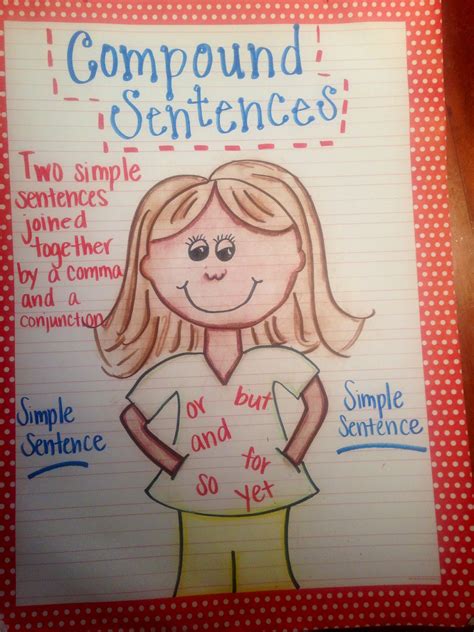 Compound
Sentences
Two simple
sentences
joined
together
by a comma
and a
conjunction
Simple
Sentence
or but
and
for
so yet
Simple
Sentence